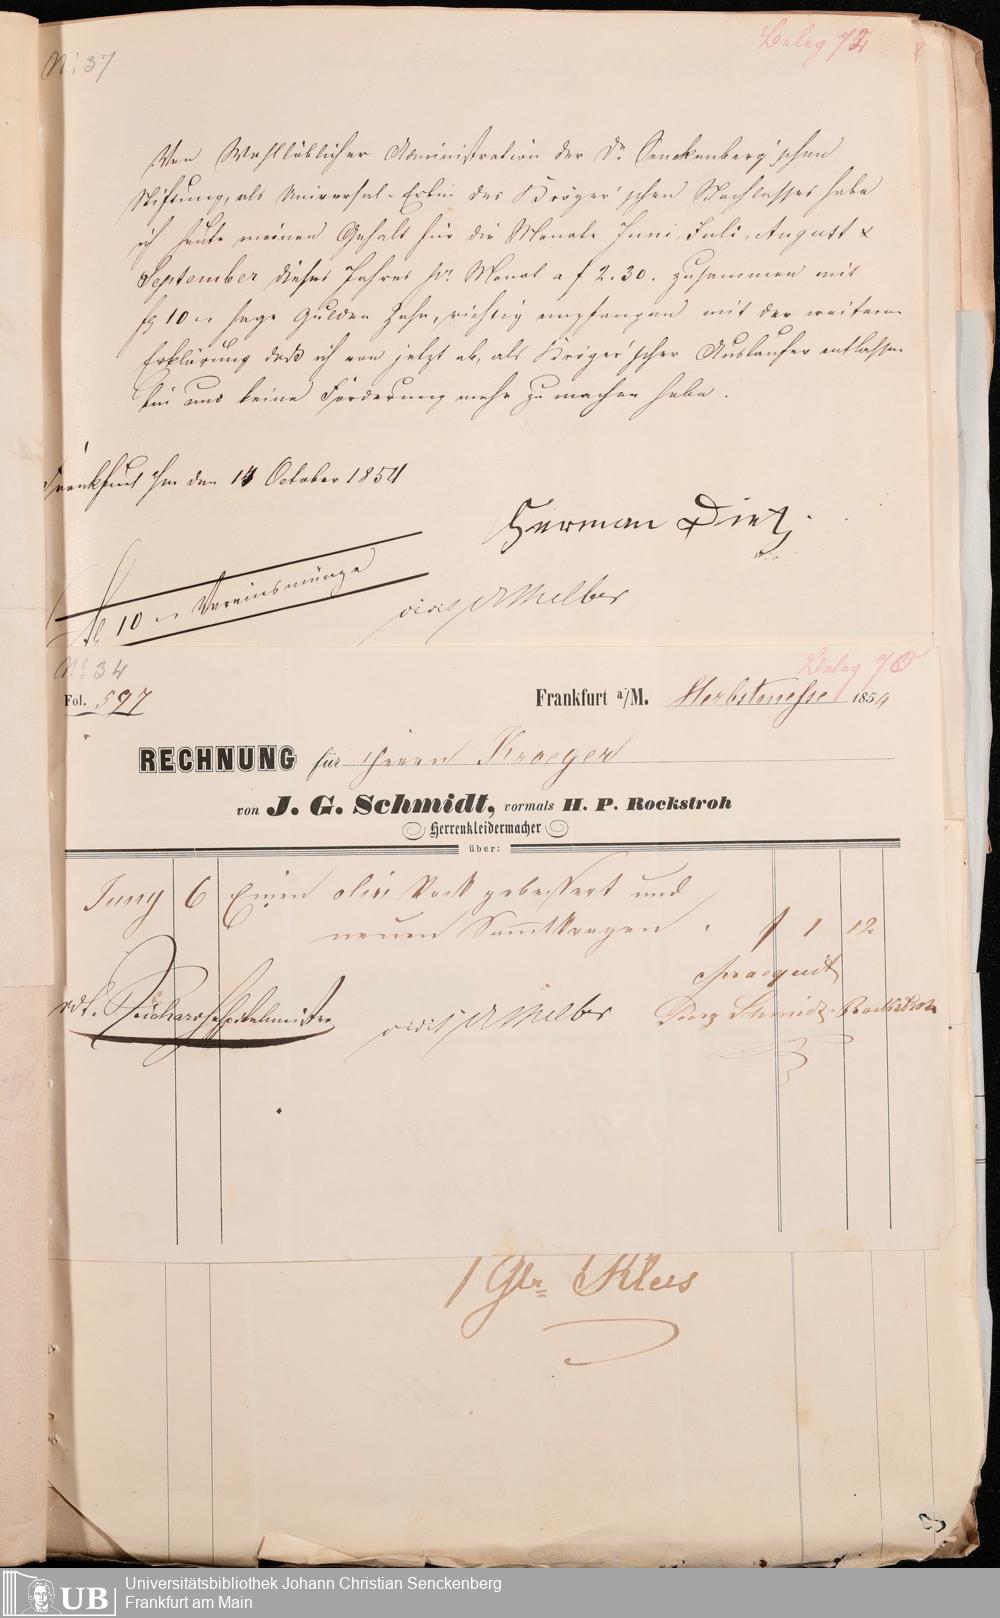 No: 37
Beleg 72
Von Wohllöblicher Administration der Dr. Senckenberg'schen
Stiftung, als Universal-Erbin des Kröger'schen Nachlasses habe
ich heute meinen Gehalt für die Monate Juni, Juli, August &
September dieses Jahres pr. Monat a f 2.30. zusammen mit
fl 10 sage Gulden Zehn, richtig empfangen mit der weiteren
Erklärung daß ich von jetzt ab, als Kröger'scher Auslaufer entlassen
bin und keine Forderung mehr zu machen habe.
Frankfurt a/m den 14 October 1854
Herman Dietz.
fl 10 Vereinsmünze
vidit Melber
No: 34
Beleg 70
Fol. 597
Frankfurt a/M. Herbstmesse 1854
RECHNUNG für Herrn Kroeger
von J. G. Schmidt, vormals H. P. Rockstroh
Herrenkleidermacher
über:
Juny 6 Einen oliv Rock gebessert und
neuen Samtkragen . f 1 12
pr acquit
vdt. Reichard
vidit Melber
Schmidt Rockstroh
Gbr Klees
Universitätsbibliothek Johann Christian Senckenberg
UB
Frankfurt am Main